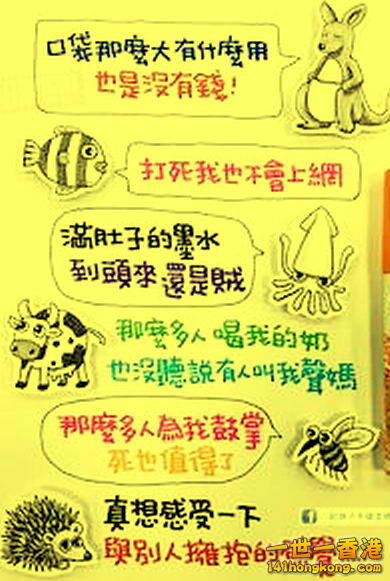 口袋那麼大有什麼用
也是沒有錢!
打死我也不會上網
滿肚子的墨水
到頭來還是賊
那麼多人喝我的奶
也沒聽說有人叫我聲媽
那麼多人為我鼓掌
死也值得了
真想感受一下
與別人擁抱的
一世一香港
141hongkong.com